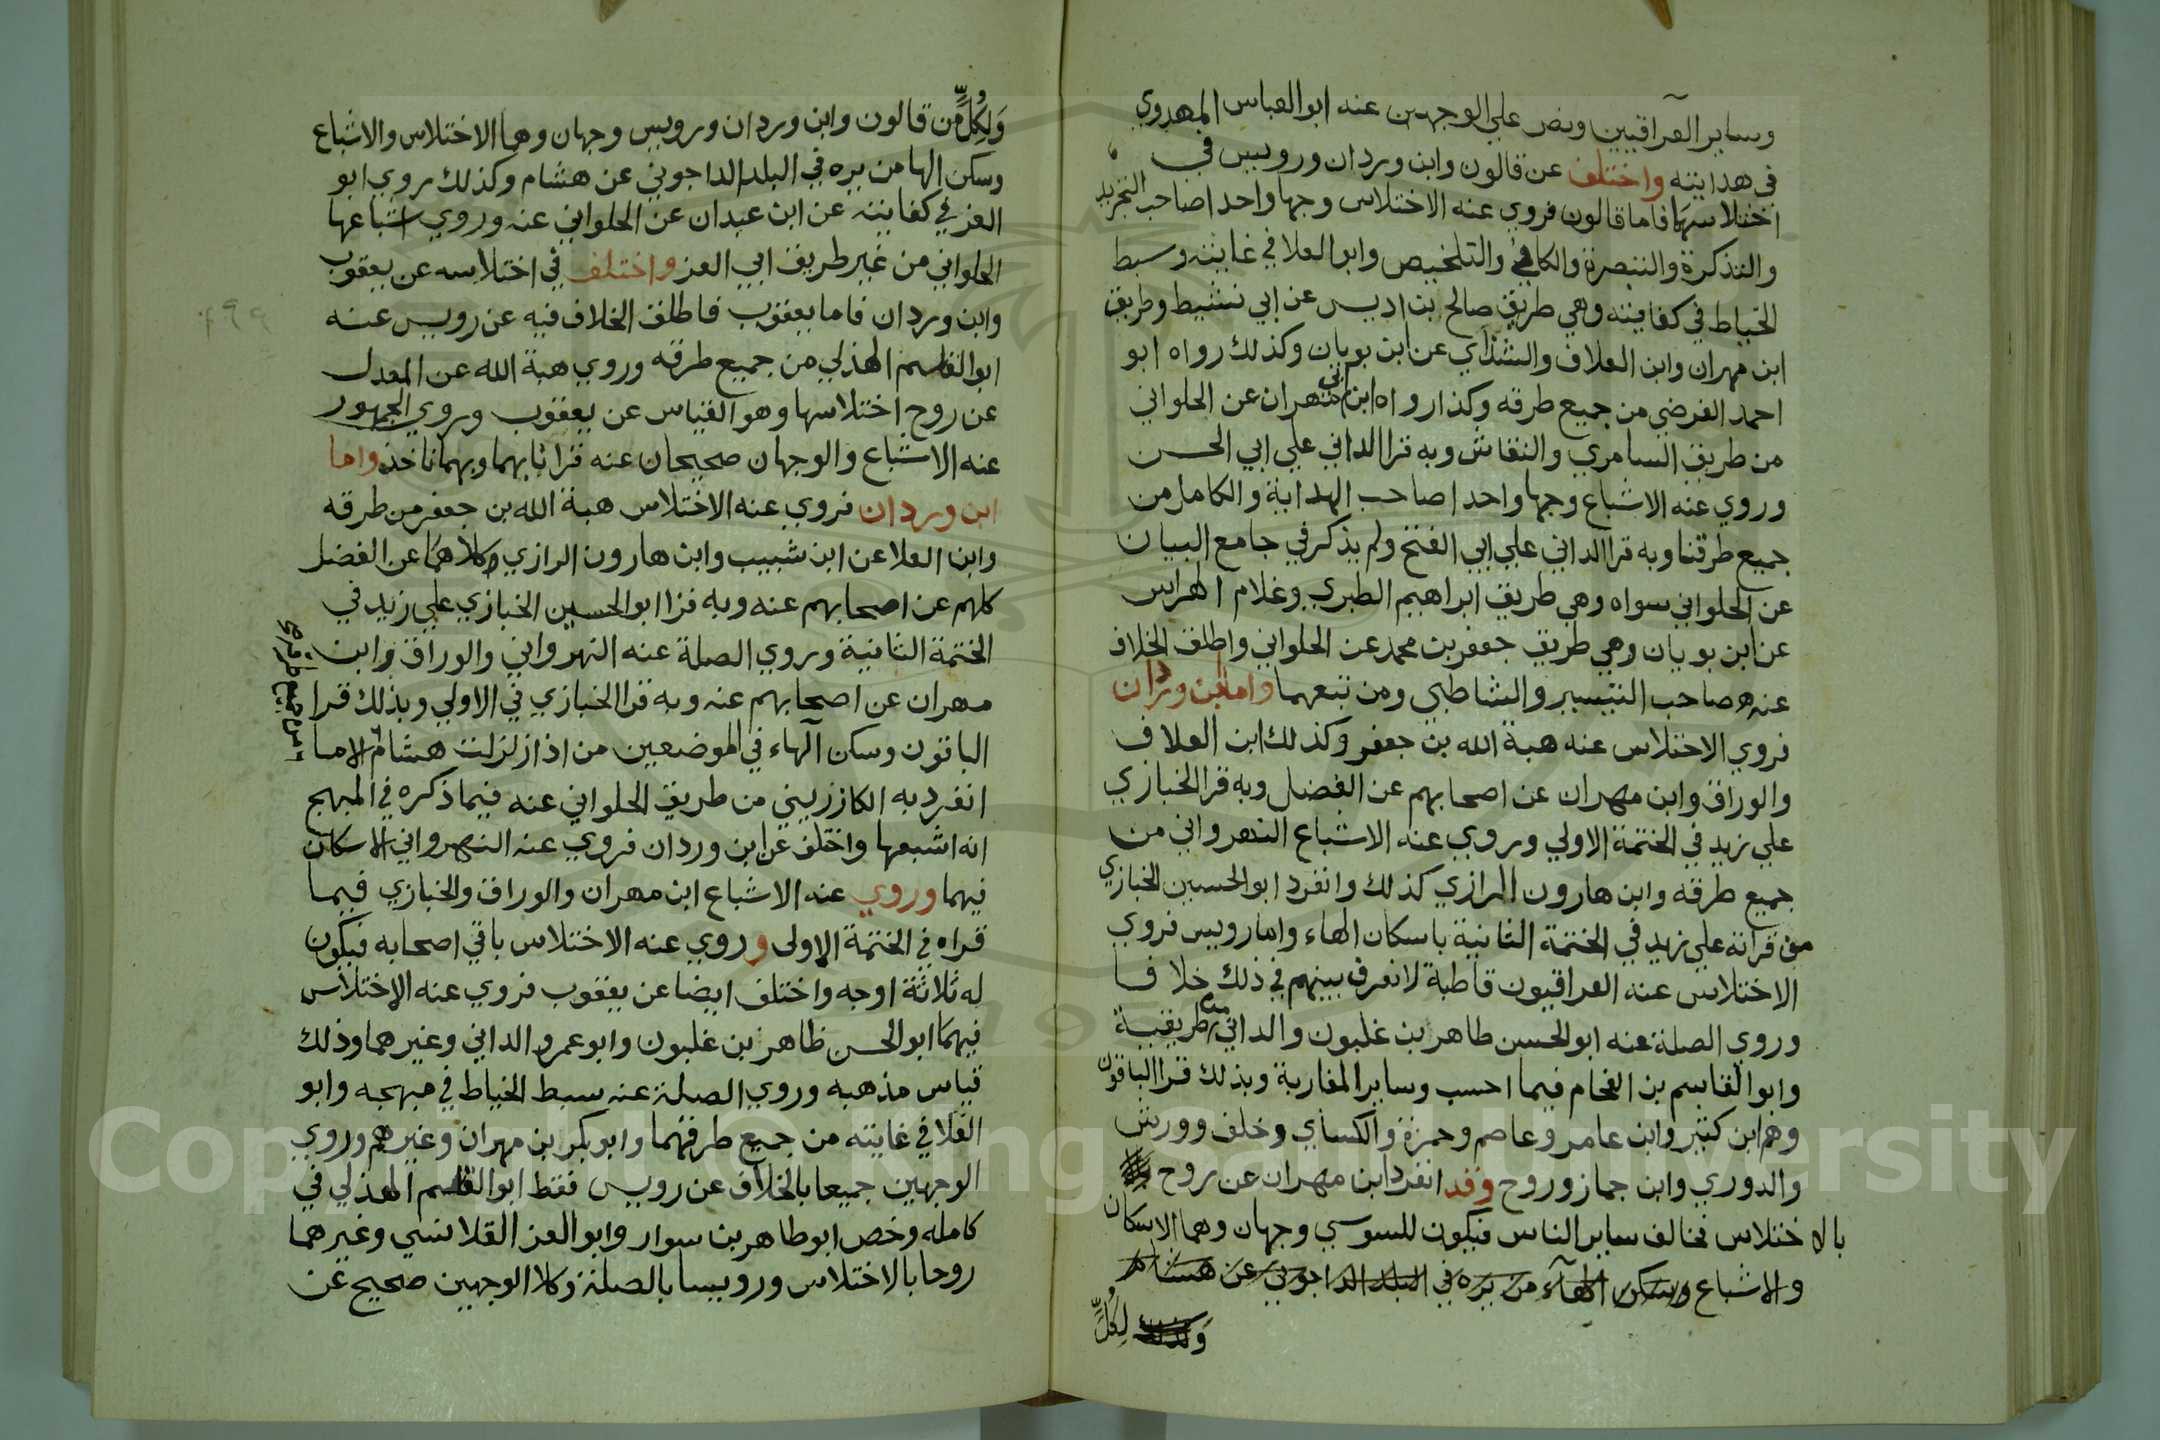 وساير العراقيين ونص علي الوجهين عنه ابو العباس المهدوي
في هدايته واختلف عن قالون وابن وردان ورويس في
اختلاسها فاما قالون فروي عنه الاختلاس وجها واحدا صاحب التجريد
والتذكرة والتبصرة والكافي والتلخيص وابو العلا في غايته وسبط
الخياط في كفايته وهي طريق صالح بن ادريس عن ابي نشيط وطريق
ابن مهران وابن العلاف والشذاي عن ابن بويان وكذلك رواه ابو
احمد الفرضي من جميع طرقه وكذا رواه ابن ابي مهران عن الحلواني
من طريق السامري والنقاش وبه قرا الداني علي ابي الحسن
وروي عنه الاشباع وجها واحدا صاحب الهداية والكامل من
جميع طرقنا وبه قرا الداني علي ابي الفتح ولم يذكر في جامع البيان
عن الحلواني سواه وهي طريق ابراهيم الطبري وغلام الهراس
عن ابن بويان وهي طريق جعفر بن محمد عن الحلواني واطلق الخلاف
عنه صاحب التيسير والشاطبي ومن تبعهما واما ابن وردان
فروي الاختلاس عنه هبة الله بن جعفر وكذلك ابن العلاف
والوراق وابن مهران عن اصحابهم عن الفضل وبه قرا الخبازي
علي زيد في الختمة الاولي وروي عنه الاشباع النهرواني من
جميع طرقه وابن هارون الرازي كذلك وانفرد ابو الحسين الخبازي
من قراته علي زيد في الختمة الثانية باسكان الهاء واما رويس فروي
الاختلاس عنه العراقيون قاطبة لا نعرف بينهم في ذلك خلافا
وروي الصلة عنه ابو الحسن طاهر بن غلبون والداني من طريقيه
وابو القاسم بن الفحام فيما احسب وساير المغاربة وبذلك قرا الباقون
وهم ابن كثير وابن عامر وعاصم وحمزة والكساي وخلف وورش
والدوري وابن جماز وروح وقد انفرد ابن مهران عن روح
بالاختلاس فخالف ساير الناس فيكون للسوسي وجهان وهما الاسكان
والاشباع وسكن الهآء من يره في البلد الداجوني عن هشام
ولكل
وَلِكُلٍّ من قالون وابن وردان ورويس وجهان وهما الاختلاس والاشباع
وسكن الها من يره في البلد الداجوني عن هشام وكذلك روي ابو
العز في كفايته عن ابن عبدان عن الحلواني عنه وروي اشباعها
الحلواني من غير طريق ابي العز واختلف في اختلاسه عن يعقوب
وابن وردان فاما يعقوب فاطلق الخلاف فيه عن رويس عنه
ابو القاسم الهذلي من جميع طرقه وروي هبة الله عن المعدل
عن روح اختلاسها وهو القياس عن يعقوب وروي الجمهور
عنه الاشباع والوجهان صحيحان عنه قرانا بهما وبهما ناخذ واما
ابن وردان فروي عنه الاختلاس هبة الله بن جعفر من طرقه
وابن العلا عن ابن شبيب وابن هارون الرازي وكلاهما عن الفضل
كلهم عن اصحابهم عنه وبه قرا ابو الحسين الخبازي علي زيد في
الختمة الثانية وروي الصلة عنه النهرواني والوراق وابن
مهران عن اصحابهم عنه وبه قرا الخبازي في الاولي وبذلك قرا
الباقون وسكن الهآء في الموضعين من اذا زلزلت هشام الا ما
انفرد به الكازريني من طريق الحلواني عنه فيما ذكره في المبهج
انه اشبعها واختلف عن ابن وردان فروي عنه النهرواني الاسكان
فيهما وروي عنه الاشباع ابن مهران والوراق والخبازي فيما
قراه في الختمة الاولى وروي عنه الاختلاس باقي اصحابه فيكون
له ثلاثة اوجه واختلف ايضا عن يعقوب فروي عنه الاختلاس
فيهما ابو الحسن طاهر بن غلبون وابو عمرو الداني وغيرهما وذلك
قياس مذهبه وروي الصلة عنه سبط الخياط في مبهجه وابو
العلا في غايته من جميع طرقهما وابو بكر بن مهران وغيرهم وروي
الوجهين جميعا بالخلاف عن رويس فقط ابو القاسم الهذلي في
كامله وخص ابو طاهر بن سوار وابو العز القلانسي وغيرهما
روحا بالاختلاس ورويسا بالصلة وكلا الوجهين صحيح عن
Copy King Saud University